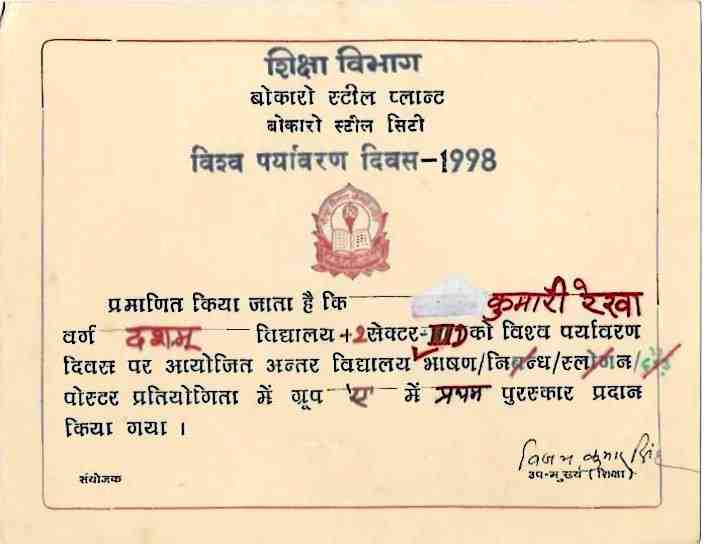 शिक्षा विभाग
बोकारो स्टील प्लान्ट
बोकारो स्टील सिटी
विश्व पर्यावरण दिवस-1998
प्रमाणित किया जाता है कि कुमारी रेखा
वर्ग दशम् विद्यालय +2 सेक्टर-III D को विश्व पर्यावरण
दिवस पर आयोजित अन्तर विद्यालय भाषण/निबन्ध/स्लोगन/
पोस्टर प्रतियोगिता में ग्रुप 'ए' में प्रथम पुरस्कार प्रदान
किया गया ।
उप-मुख्य (शिक्षा)
संयोजक